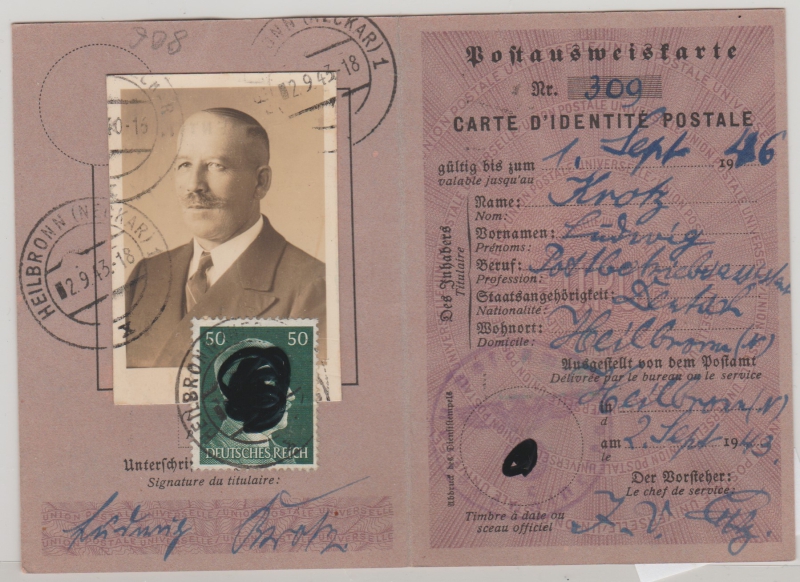 908
HEILBRONN (NECKAR) 1
2.9.43-18
HEILBRONN (NECKAR) 1
2.9.43-18
50 50
DEUTSCHES REICH
Unterschri
Signature du titulaire:
Ludwig Krotz
Postausweiskarte
Nr. 309
CARTE D'IDENTITÉ POSTALE
gültig bis zum 1. Sept 1946
valable jusqu'au
Des Inhabers
Titulaire
Name: Krotz
Nom:
Vornamen: Ludwig
Prénoms:
Beruf: Postbetriebsassistent
Profession:
Staatsangehörigkeit: Deutsch
Nationalité:
Wohnort: Heilbronn (N)
Domicile:
Ausgestellt von dem Postamt
Délivrée par le bureau ou le service
in Heilbronn (N)
à
am 2. Sept 1943.
le
Der Vorsteher:
Le chef de service:
Abdruck des Dienststempels
Timbre à date ou
sceau officiel